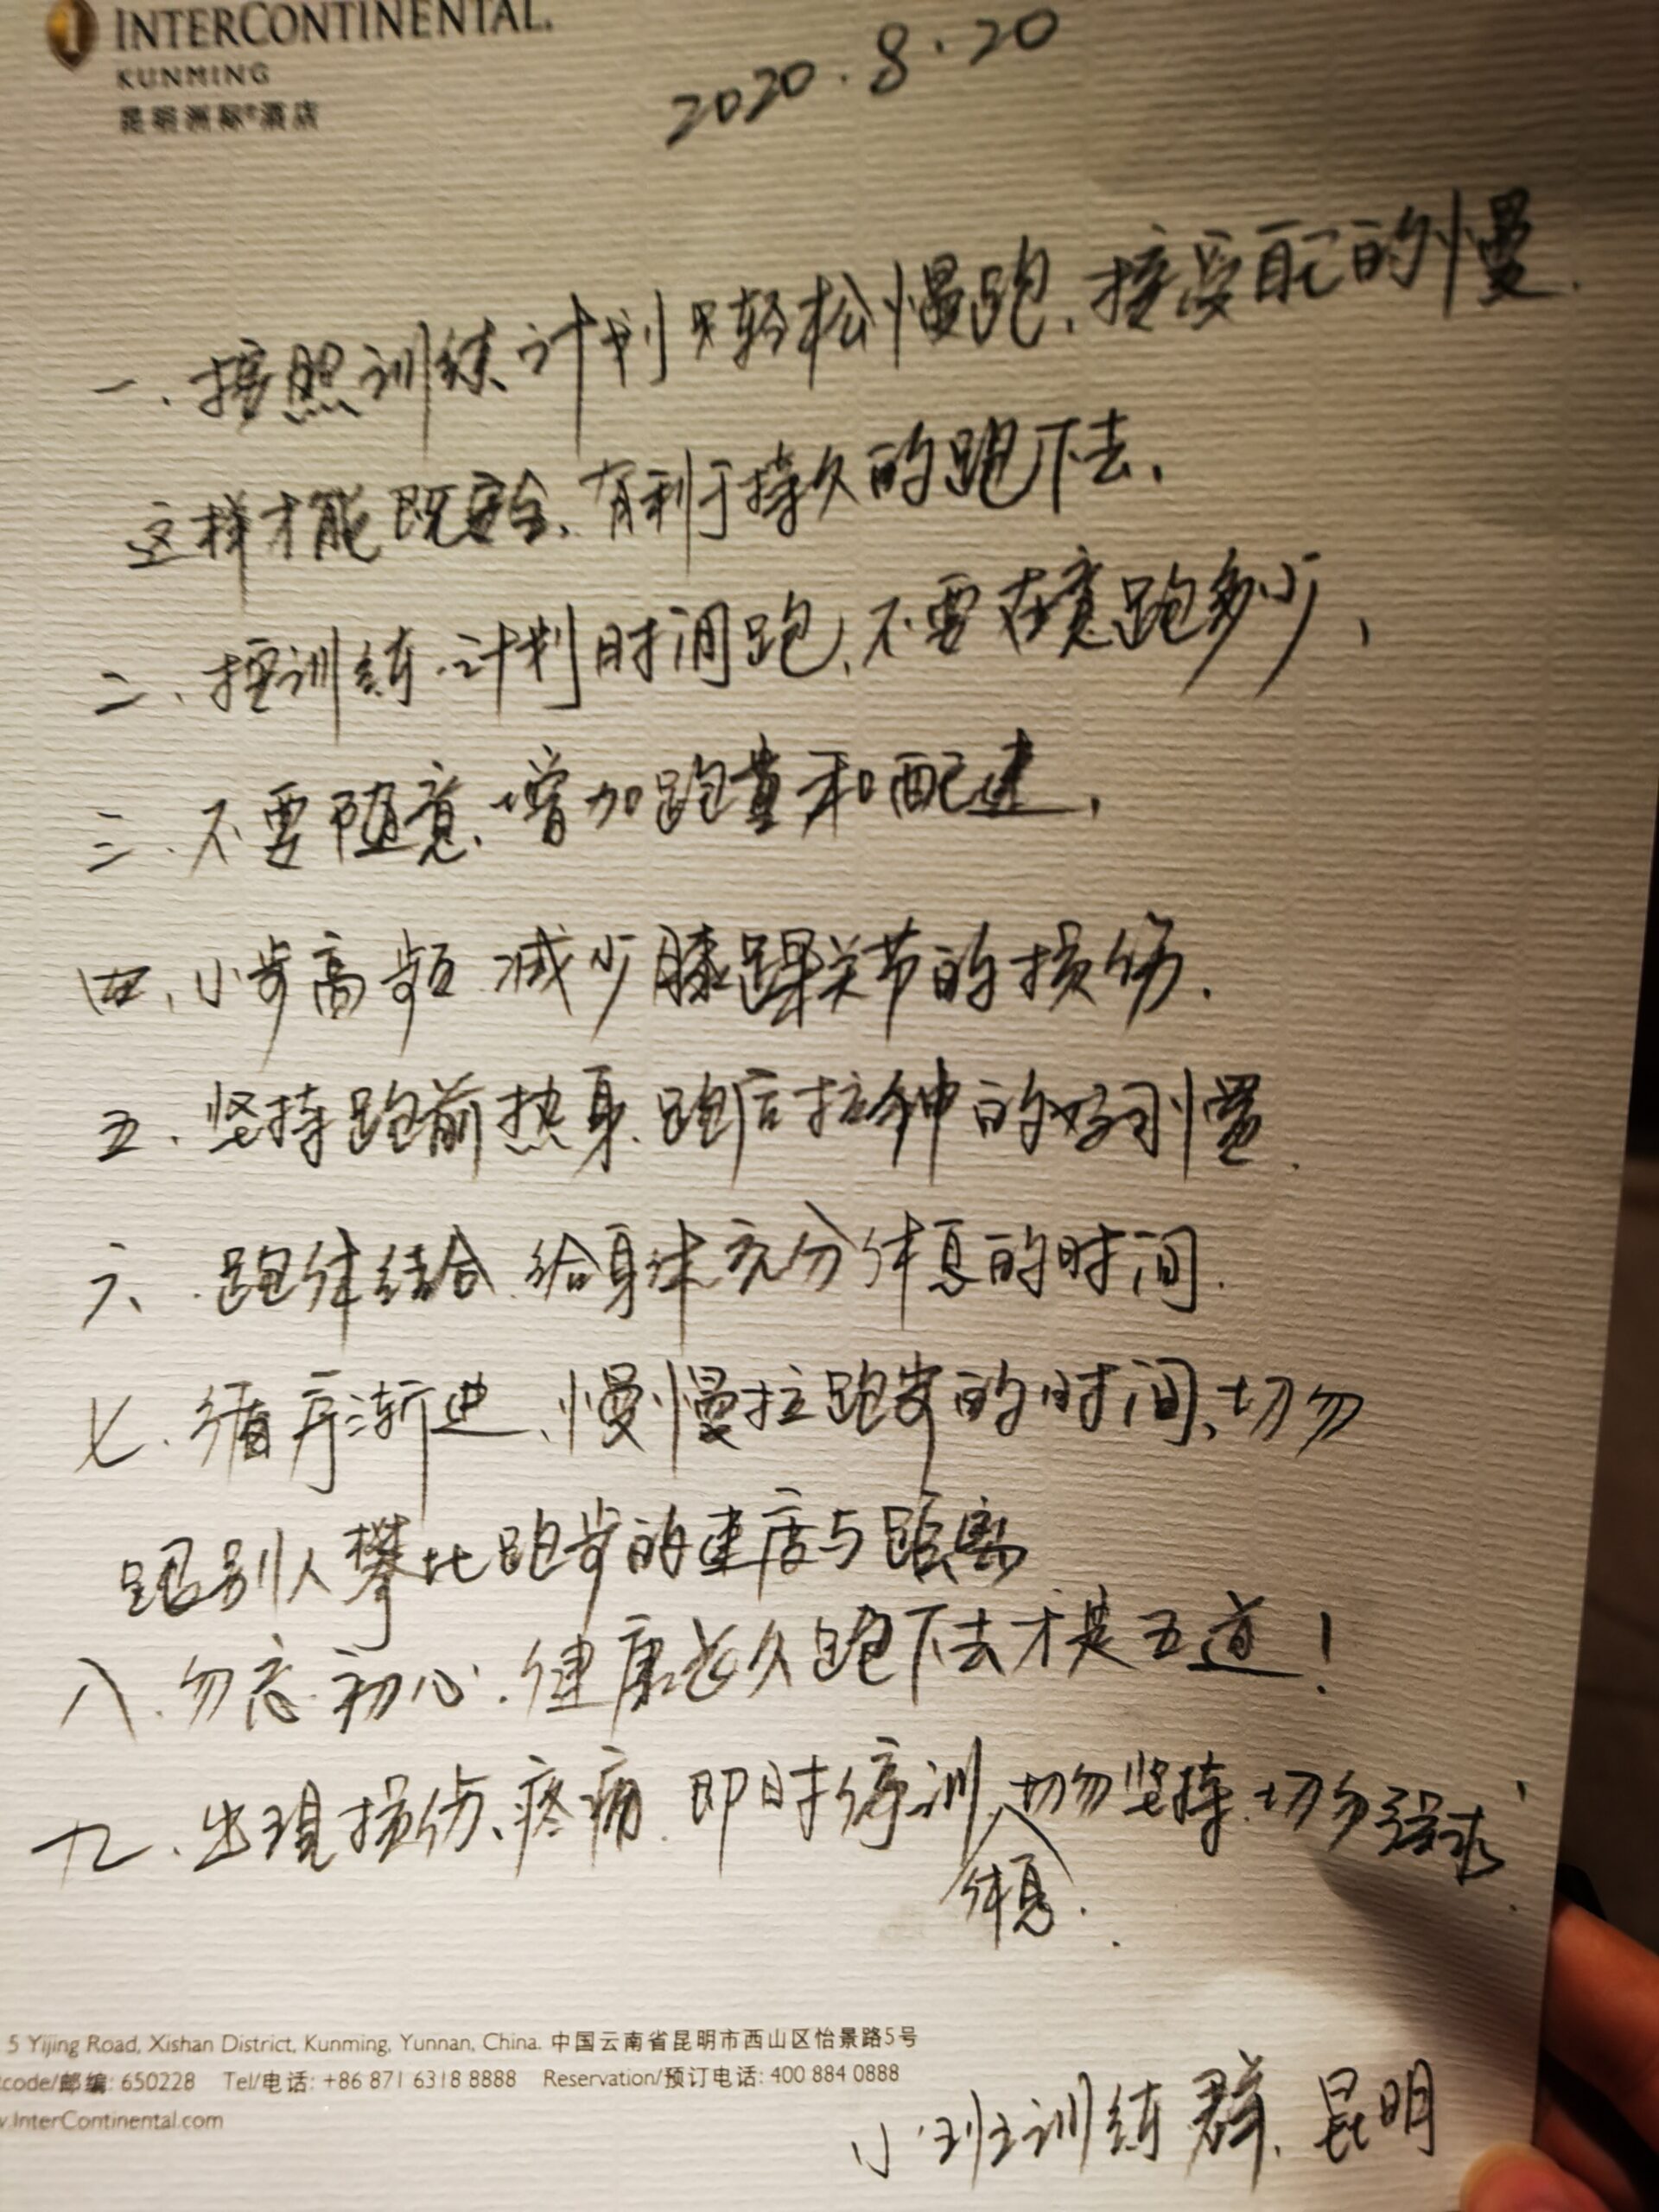 INTERCONTINENTAL.
KUNMING
昆明洲际®酒店
2020.8.20
一、按照训练计划只轻松慢跑、接受自己的慢.
这样才能既安全、有利于持久的跑下去、
二、按训练计划时间跑、不要在意跑多少、
三、不要随意、增加跑量和配速、
四、小步高频 减少膝踝关节的损伤.
五、坚持跑前热身、跑后拉伸的好习惯.
六、跑休结合、给身体充分休息的时间.
七、循序渐进、慢慢拉跑步的时间、切勿
跟别人攀比跑步的速度与距离
八、勿忘初心.健康长久跑下去才是王道!
九、出现损伤、疼痛.即时停训、切勿坚持、切勿强求
休息.
5 Yijing Road, Xishan District, Kunming, Yunnan, China. 中国云南省昆明市西山区怡景路5号
code/邮编: 650228 Tel/电话: +86 871 6318 8888 Reservation/预订电话: 400 884 0888
.InterContinental.com
小班训练群、昆明